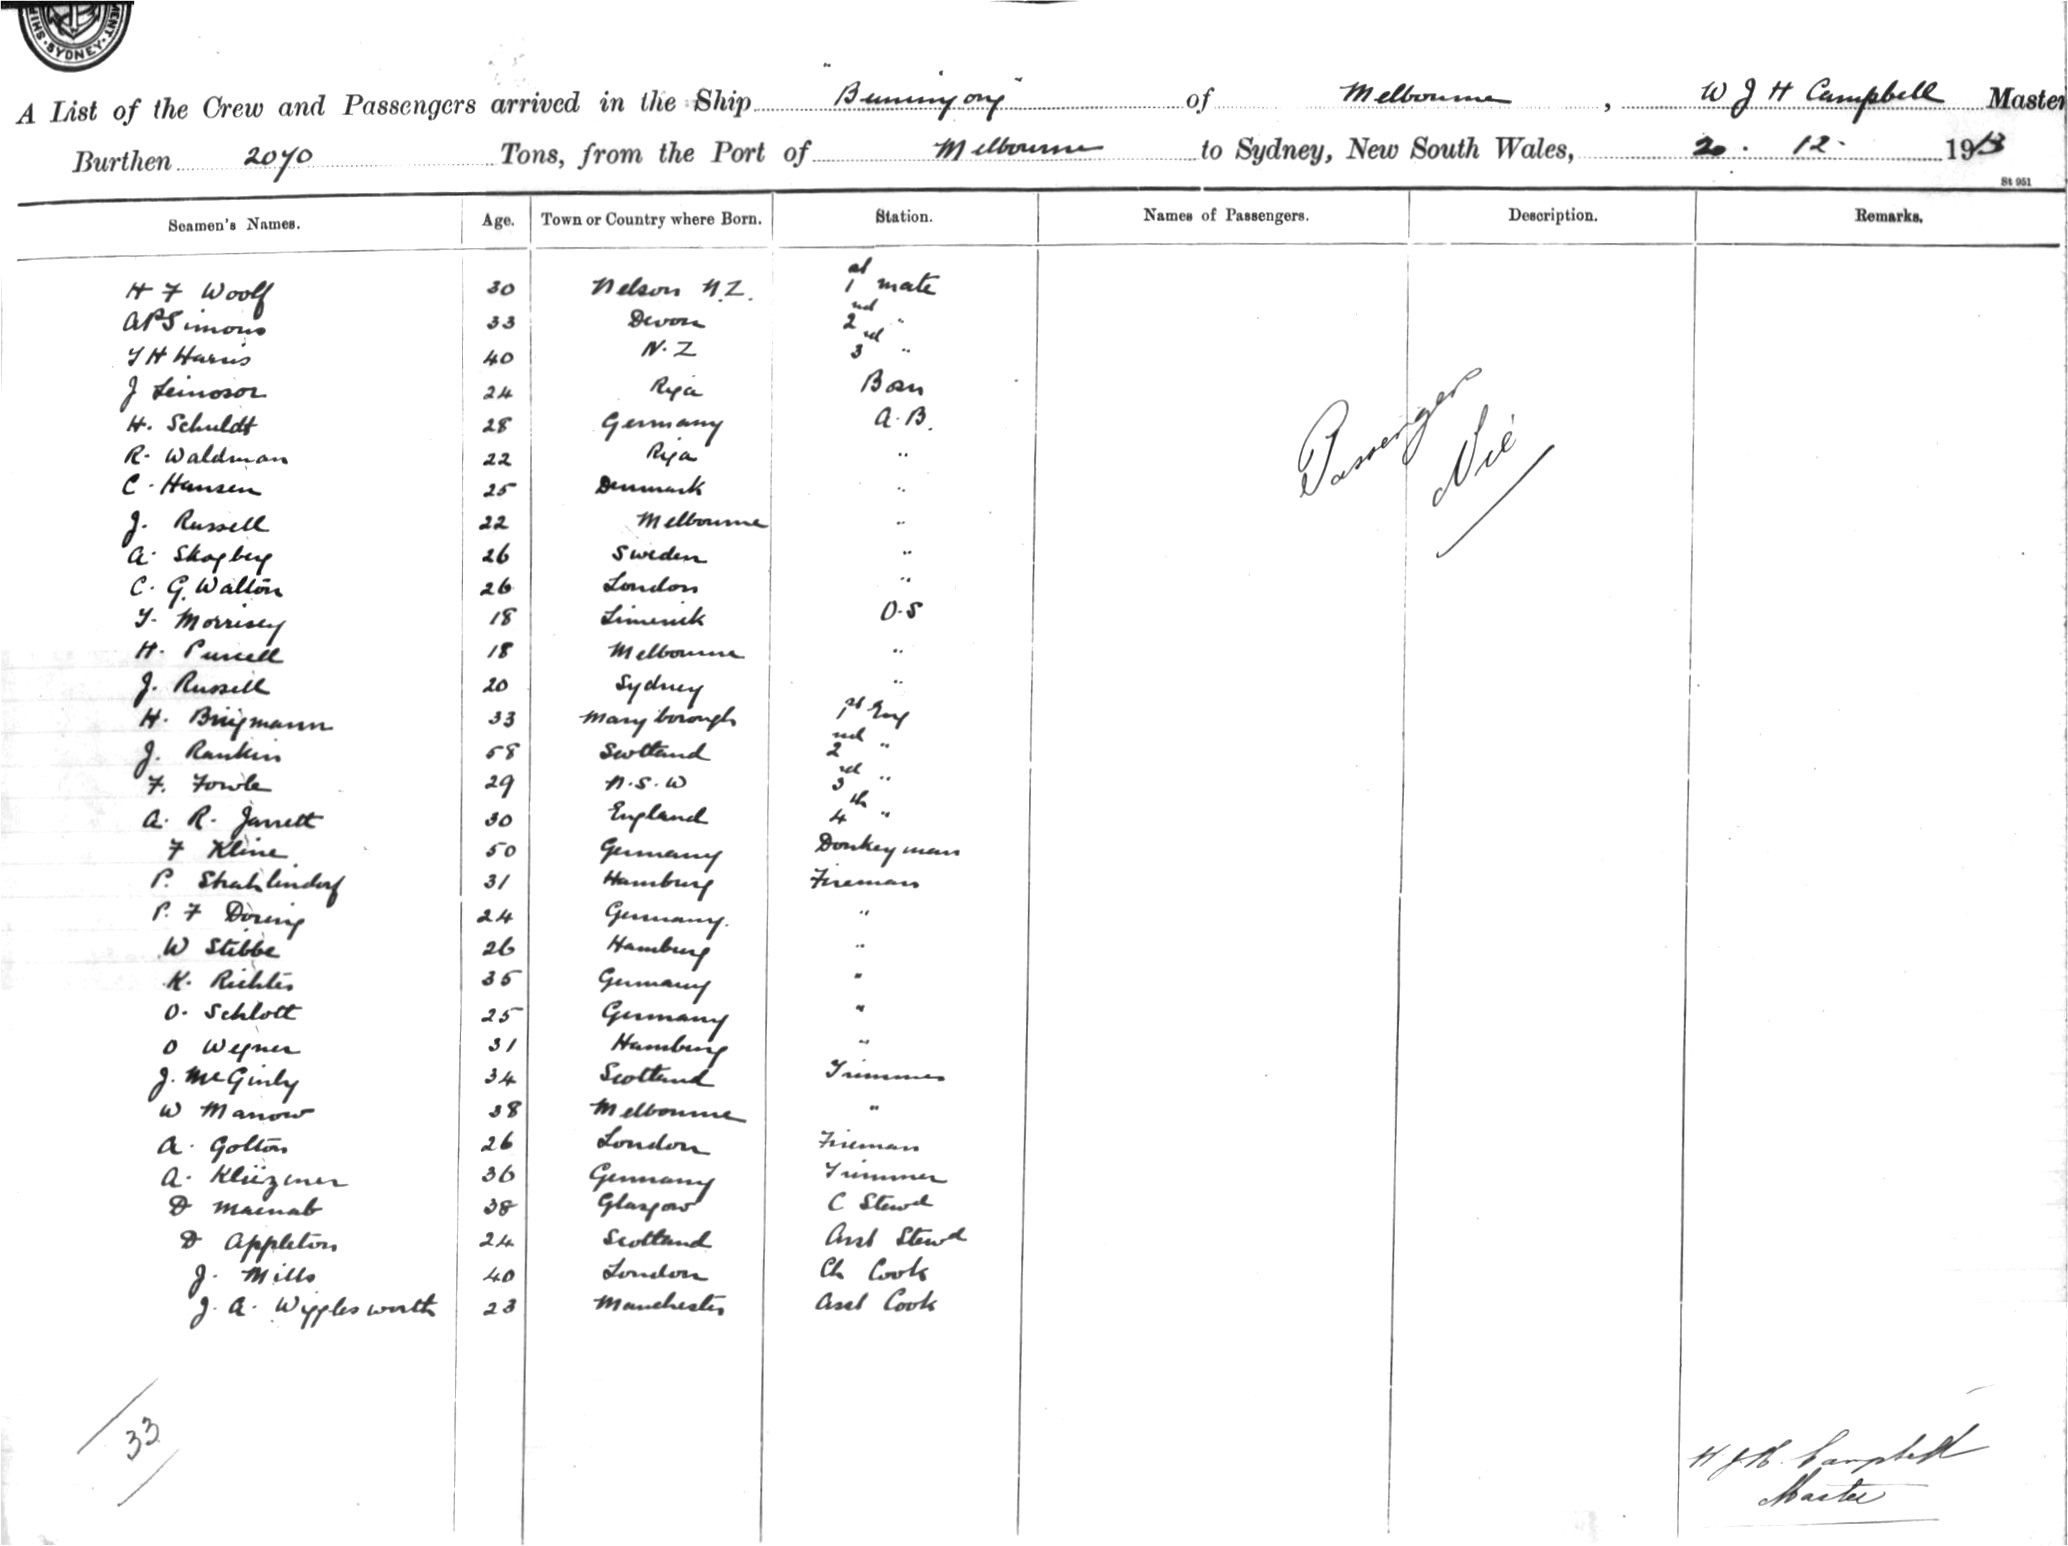 SHIP MENT SYDNEY
A List of the Crew and Passengers arrived in the Ship "Buninyong" of Melbourne, W J H Campbell Master
Burthen 2070 Tons, from the Port of Melbourne to Sydney, New South Wales, 20. 12. 1913
St 951
Seamen's Names. Age. Town or Country where Born. Station. Names of Passengers. Description. Remarks.
H F Woolf 30 Nelson N.Z. 1st mate
A P Simons 33 Devon 2nd "
T H Harris 40 N.Z 3rd "
J 24 Riga Bosn
H. Schuldt 28 Germany A.B.
R. Waldman 22 Riga "
C. Hansen 25 Denmark "
J. Russell 22 Melbourne "
A. Skogberg 26 Sweden "
C. G. Walton 26 London "
T. Morrisey 18 Limerick O.S
H. Purcell 18 Melbourne "
J. Russell 20 Sydney "
H. Bringmann 33 Maryborough 1st Eng
J. Rankin 58 Scotland 2nd "
F. Fowle 29 N.S.W 3rd "
A. R. Jarrett 30 England 4th "
F Kline 50 Germany Donkeyman
P. Strahlindorf 31 Hamburg Fireman
P. F Doring 24 Germany. "
W Stibbe 26 Hamburg "
K. Richter 35 Germany "
O. Schlott 25 Germany "
O Wegner 31 Hamburg "
J. McGinly 34 Scotland Trimmer
W Marrow 38 Melbourne "
A. Golton 26 London Fireman
A. 36 Germany Trimmer
D Macnab 38 Glasgow C Stewd
D Appleton 24 Scotland Asst Stewd
J. Mills 40 London Ch Cook
J. A. Wigglesworth 23 Manchester Asst Cook
Passenger
Nil
33
W J H. Campbell
Master